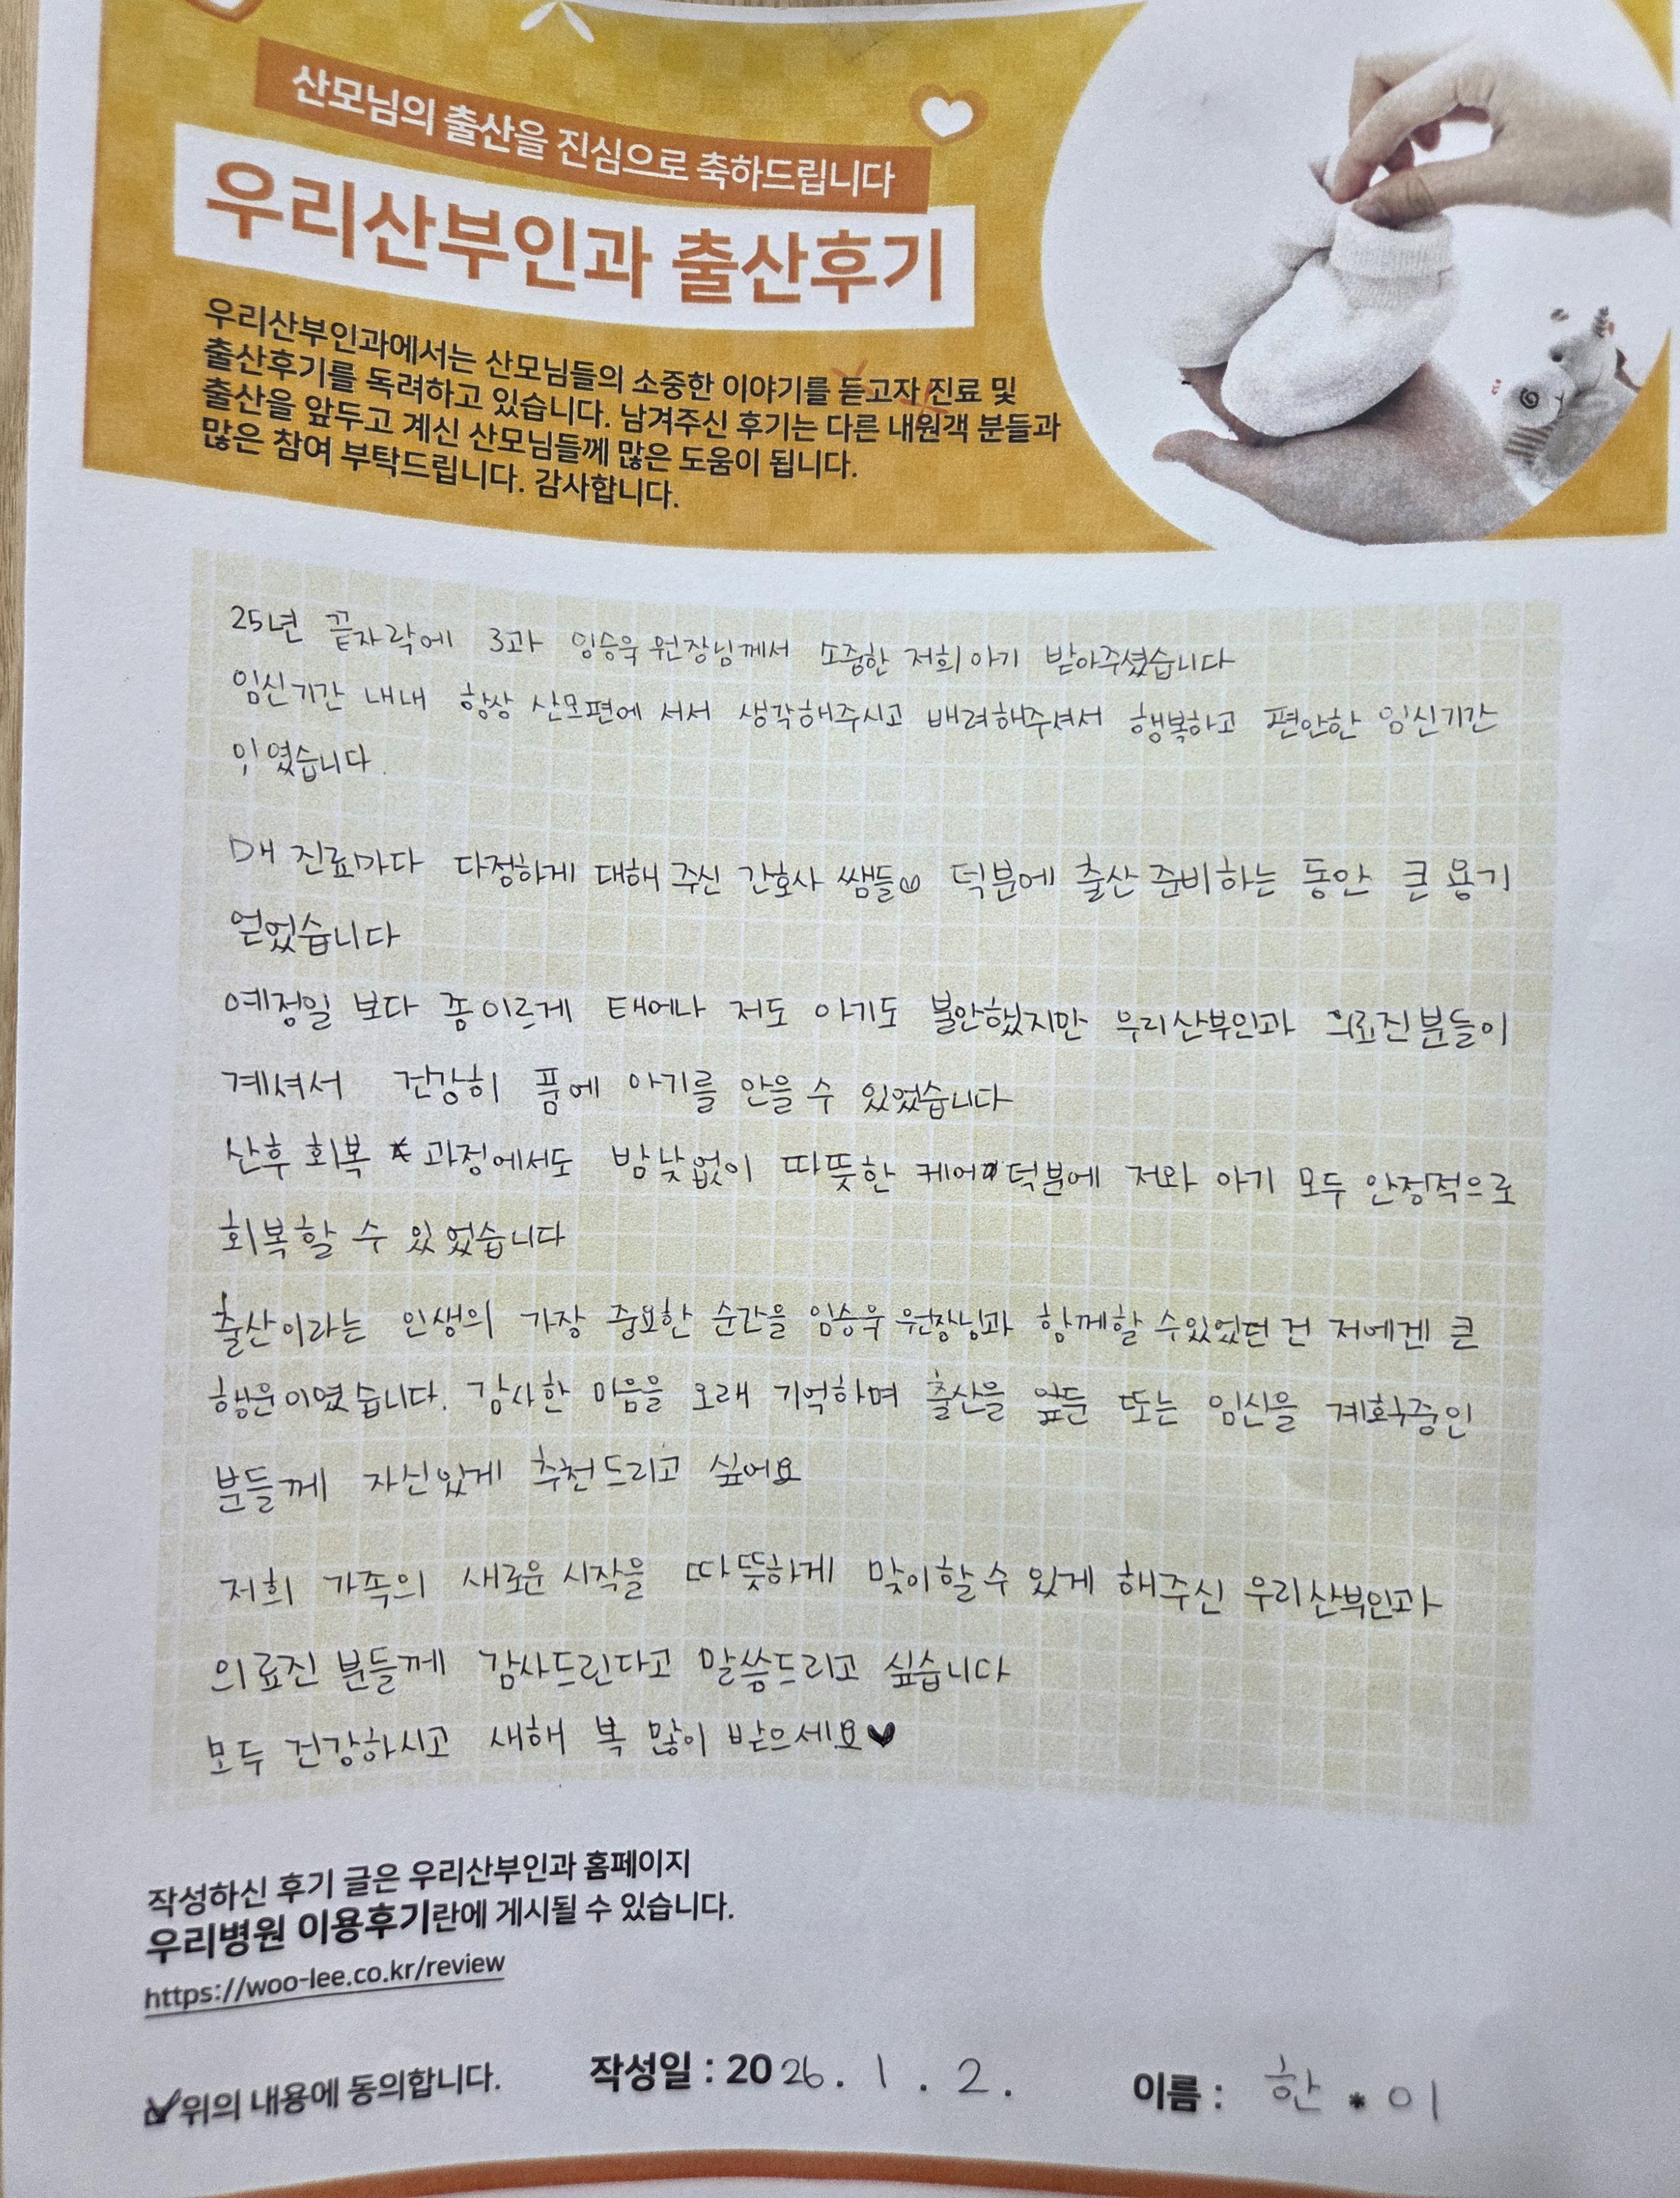 산모님의 출산을 진심으로 축하드립니다
우리산부인과 출산후기
우리산부인과에서는 산모님들의 소중한 이야기를 듣고자 진료 및
출산후기를 독려하고 있습니다. 남겨주신 후기는 다른 내원객 분들과
출산을 앞두고 계신 산모님들께 많은 도움이 됩니다.
많은 참여 부탁드립니다. 감사합니다.
25년 끝자락에 3과 임승욱 원장님께서 소중한 저희 아기 받아주셨습니다
임신기간 내내 항상 산모편에 서서 생각해주시고 배려해주셔서 행복하고 편안한 임신기간
이였습니다.
매 진료마다 다정하게 대해 주신 간호사 쌤들 덕분에 출산 준비하는 동안 큰 용기
얻었습니다
예정일 보다 좀 이르게 태어나 저도 아기도 불안했지만 우리산부인과 의료진분들이
계셔서 건강히 품에 아기를 안을 수 있었습니다
산후 회복 과정에서도 밤낮없이 따뜻한 케어 덕분에 저와 아기 모두 안정적으로
회복할 수 있었습니다
출산이라는 인생의 가장 중요한 순간을 임승욱 원장님과 함께할 수있었던 건 저에겐 큰
행운이였습니다. 감사한 마음을 오래 기억하며 출산을 앞둔 또는 임신을 계획중인
분들께 자신있게 추천드리고 싶어요
저희 가족의 새로운 시작을 따뜻하게 맞이할 수 있게 해주신 우리산부인과
의료진 분들께 감사드린다고 말씀드리고 싶습니다
모두 건강하시고 새해 복 많이 받으세요♥
작성하신 후기 글은 우리산부인과 홈페이지
우리병원 이용후기란에 게시될 수 있습니다.
https://woo-lee.co.kr/review
위의 내용에 동의합니다. 작성일 : 2026. 1. 2. 이름 : 한*이